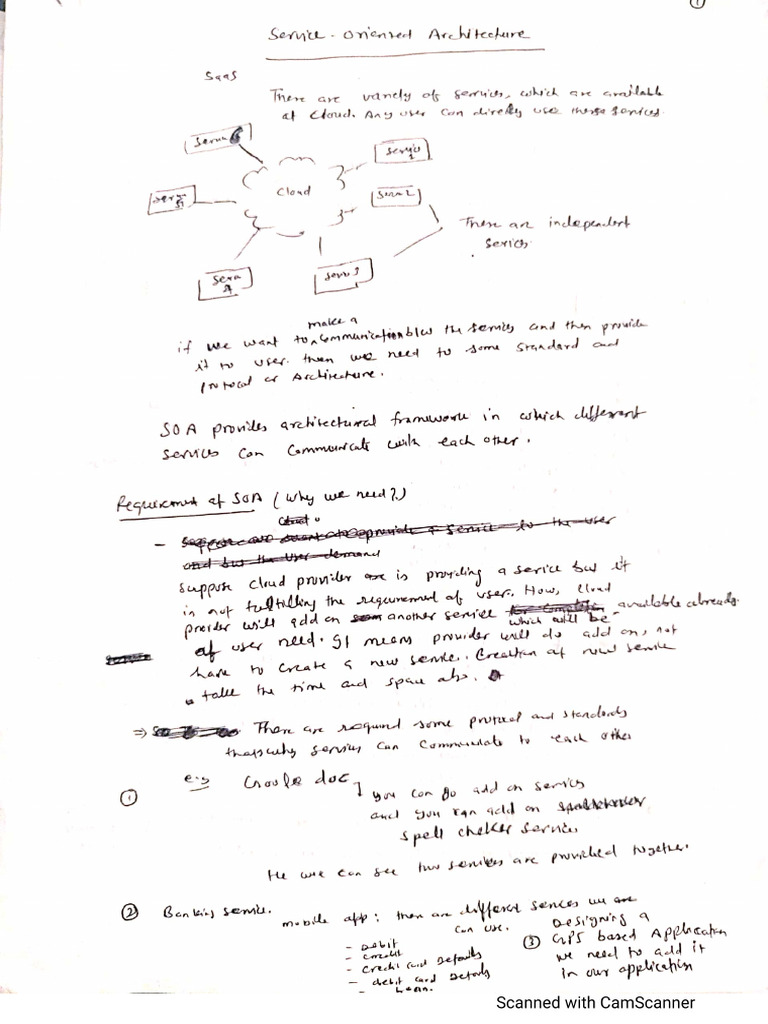 1
Service-Oriented Architecture
SaaS
There are variety of services, which are available
at cloud. Any user can directly use these services.
Cloud
There are independent
serices.
make a
if we want to communication b/w the services and then provide
it to user. then we need to some standard and
protocol or Architecture.
SOA provides architectural framework in which different
services can communicate with each other.
Requirement of SOA (Why we need?)
suppose cloud provider is providing a service but it
is not fulfilling the requirement of user. Now, cloud
provider will add on another service available already
which will be
of user need. It means provider will do add on, not
have to create a new service. Creation of new service
take the time and space also.
⇒ There are required some protocol and standards
services can communicate to each other
e.g
① Google doc
you can go add on services
and you can add on
spell cheker services
we can see two services are provided together.
② Banking service.
mobile app: there are different services we
can use.
- Debit
- credit
- credit card Details
- debit card Details
③ Designing a
GPS based Application
we need to add it
in our application
Scanned with CamScanner